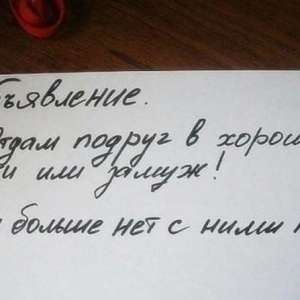 ъявление.
тдам подруг в хорош
и или замуж!
больше нет с ними